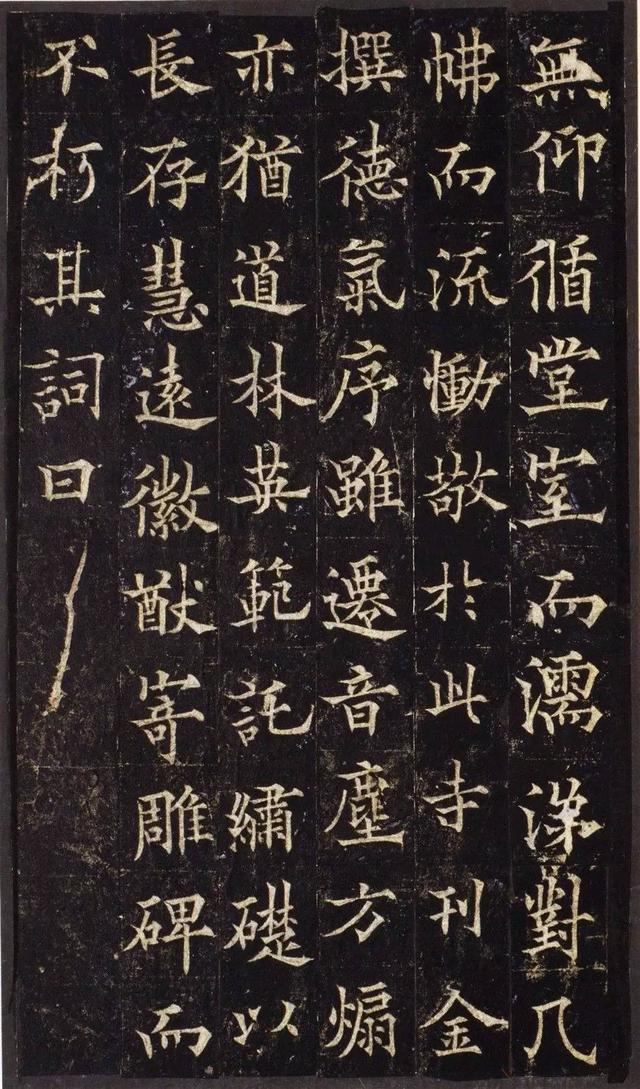 無仰循堂室而濡涕對几
而流慟敬於此寺刊金
撰德氣序雖遷音塵方煽
亦猶道林英範託繡礎以
長存慧遠徽猷寄雕碑而
不朽其詞曰